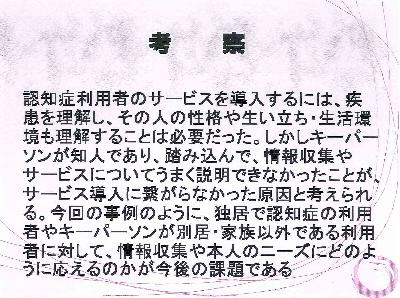 考　察
認知症利用者のサービスを導入するには、疾
患を理解し、その人の性格や生い立ち・生活環
境も理解することは必要だった。しかしキーパー
ソンが知人であり、踏み込んで、情報収集や
サービスについてうまく説明できなかったことが、
サービス導入に繋がらなかった原因と考えられ
る。今回の事例のように、独居で認知症の利用
者やキーパーソンが別居・家族以外である利用
者に対して、情報収集や本人のニーズにどのよ
うに応えるのかが今後の課題である